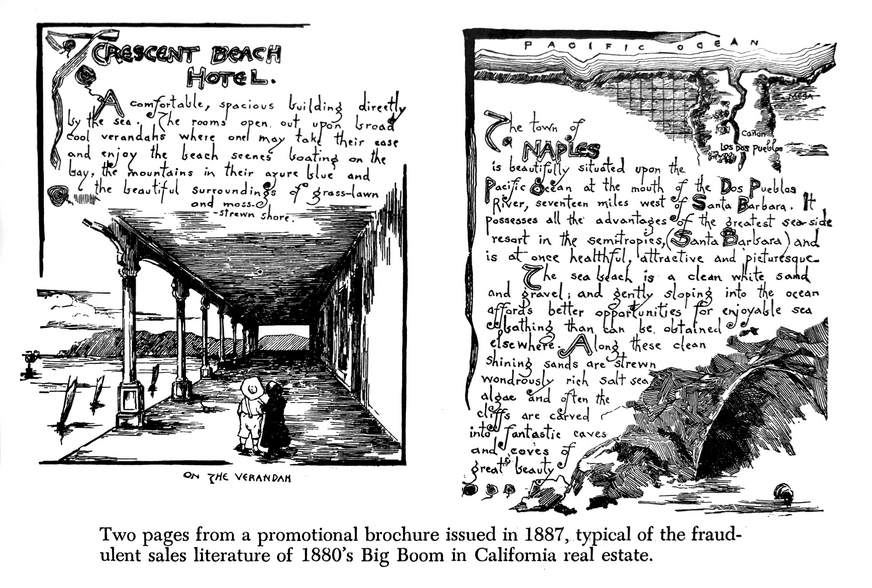 CRESCENT BEACH
HOTEL.
A comfortable, spacious building directly
by the sea. The rooms open out upon broad
cool verandahs where one may take their ease
and enjoy the beach scenes boating on the
bay, the mountains in their azure blue and
the beautiful surroundings of grass-lawn
and moss-
-strewn shore.
ON THE VERANDAH
PACIFIC OCEAN
MESA
Cañon
Los Dos Pueblos
The town of
NAPLES
is beautifully situated upon the
Pacific Ocean at the mouth of the Dos Pueblos
River, seventeen miles west of Santa Barbara. It
possesses all the advantages of the greatest sea-side
resort in the semitropics, (Santa Barbara) and
is at once healthful, attractive and picturesque
The sea beach is a clean white sand
and gravel; and gently sloping into the ocean
affords better opportunities for enjoyable sea
bathing than can be obtained
elsewhere. Along these clean
shining sands are strewn
wondrously rich salt sea
algae and often the
cliffs are carved
into fantastic caves
and coves of
great beauty
Two pages from a promotional brochure issued in 1887, typical of the fraud-
ulent sales literature of 1880's Big Boom in California real estate.